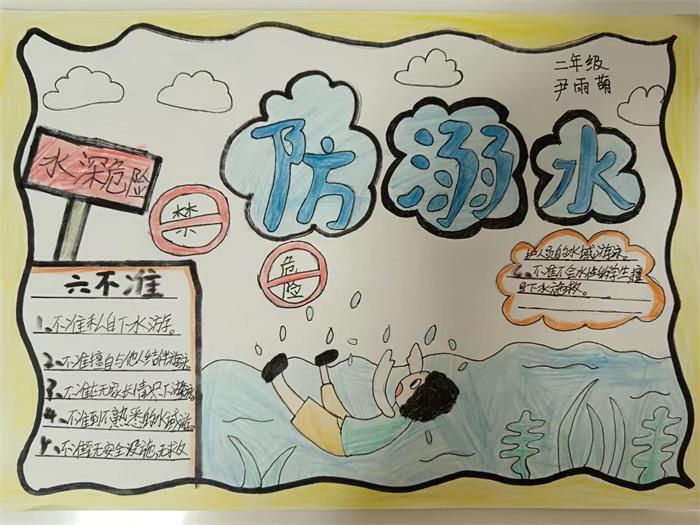 二年级
尹雨萌
防溺水
水深危险
禁
危险
六不准
1、不准私自下水游泳。
2、不准擅自与他人结伴游泳
3、不准在无家长情况下游泳
4、不准到不熟悉的水域游
5、不准到无安全设施,无救
护人员的水域游泳。
6、不准不会水性的学生擅
自下水施救。